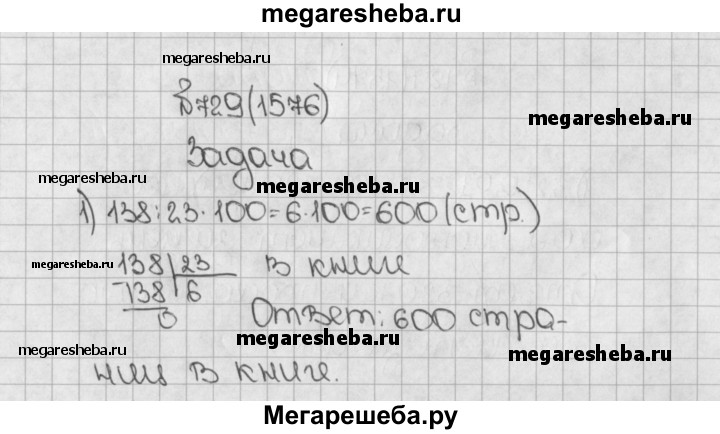 megaresheba.ru
megaresheba.ru
№729(1576)
megaresheba.ru
Задача
megaresheba.ru
megaresheba.ru
1) 138:23·100=6·100=600(стр.)
megaresheba.ru
138 23 в книги
-138 6
0
megaresheba.ru
Ответ: 600 стра-
megaresheba.ru
megaresheba.ru
ниц в книге.
Мегарешеба.ру